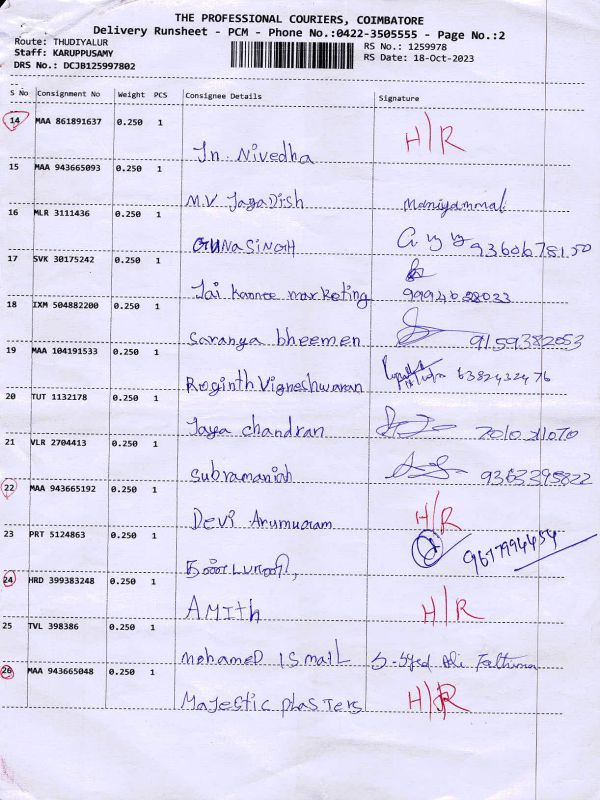 THE PROFESSIONAL COURIERS, COIMBATORE
Delivery Runsheet - PCM - Phone No.:0422-3505555 - Page No.:2
Route: THUDIYALUR
Staff: KARUPPUSAMY
DRS No.: DCJB125997802
RS No.: 1259978
RS Date: 18-Oct-2023
S No Consignment No Weight PCS Consignee Details Signature
14 MAA 861891637 0.250 1 H/R
Jn. Nivedha
15 MAA 943665093 0.250 1
M.V Jaga Dish Maniyammal
16 MLR 3111436 0.250 1
GUNA SINGH 9360678150
17 SVK 30175242 0.250 1
Jai kannee marketing 9994028033
18 IXM 504882200 0.250 1
Saranya bheemen 9159382053
19 MAA 104191533 0.250 1
Roginth Vigneshwaran 6382432476
20 TUT 1132178 0.250 1
Jaya chandran
21 VLR 2704413 0.250 1
Subramaniah 9363395822
22 MAA 943665192 0.250 1
Devi Arumugam H/R
23 PRT 5124863 0.250 1 9677994454
24 HRD 399383248 0.250 1
AMITH H/R
25 TVL 398386 0.250 1
mohameD ISmaIL S. Syed Ali Fathima
26 MAA 943665048 0.250 1
Majestic plasters H/R